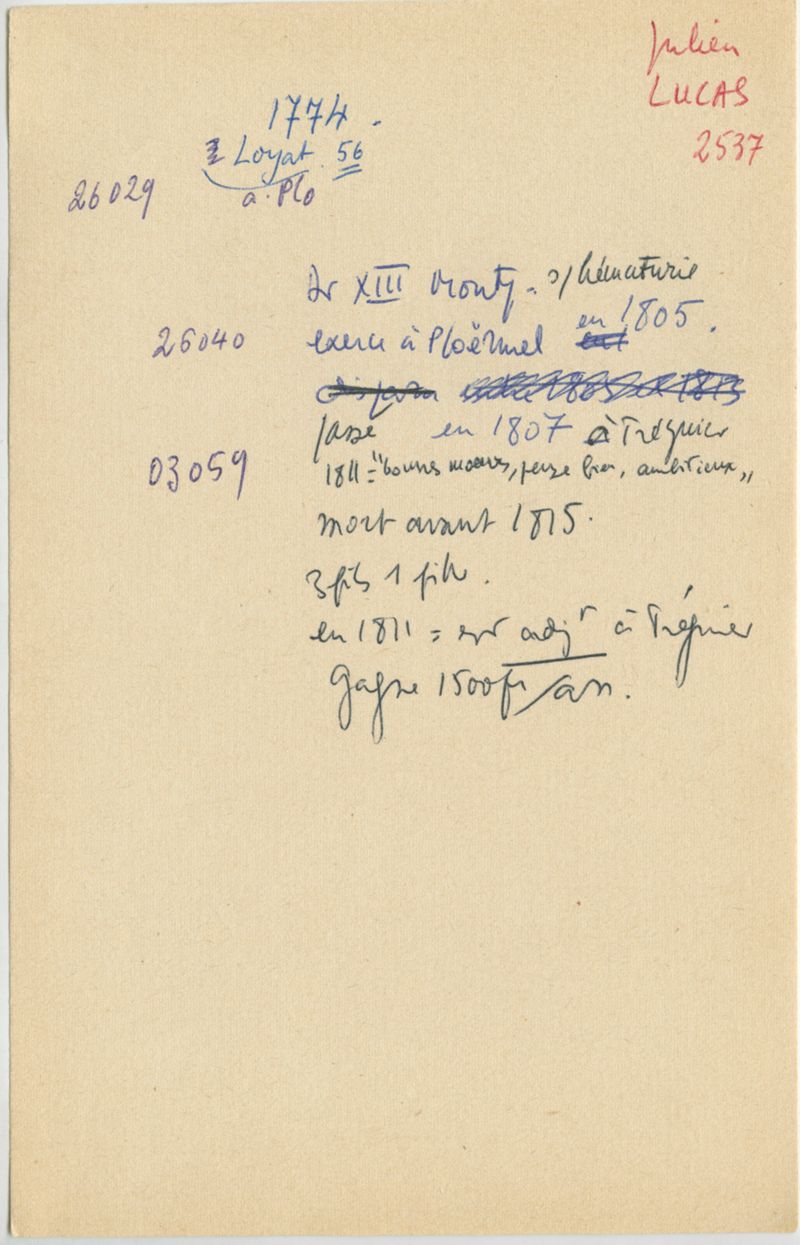 Julien
LUCAS
2537
1774.
Loyat 56
26029 a. Plo
Dr XIII Montp. s/ hématurie
26040 exerce à Ploërmel en 1805.
disparu entre 1805 et 1813
passé en 1807 à Tréguier
03059 1811 = "bonnes moeurs, pense bien, ambitieux"
mort avant 1815.
3 fils 1 fille.
en 1811 = est adjt à Tréguier
Gagne 1500 fr/an.